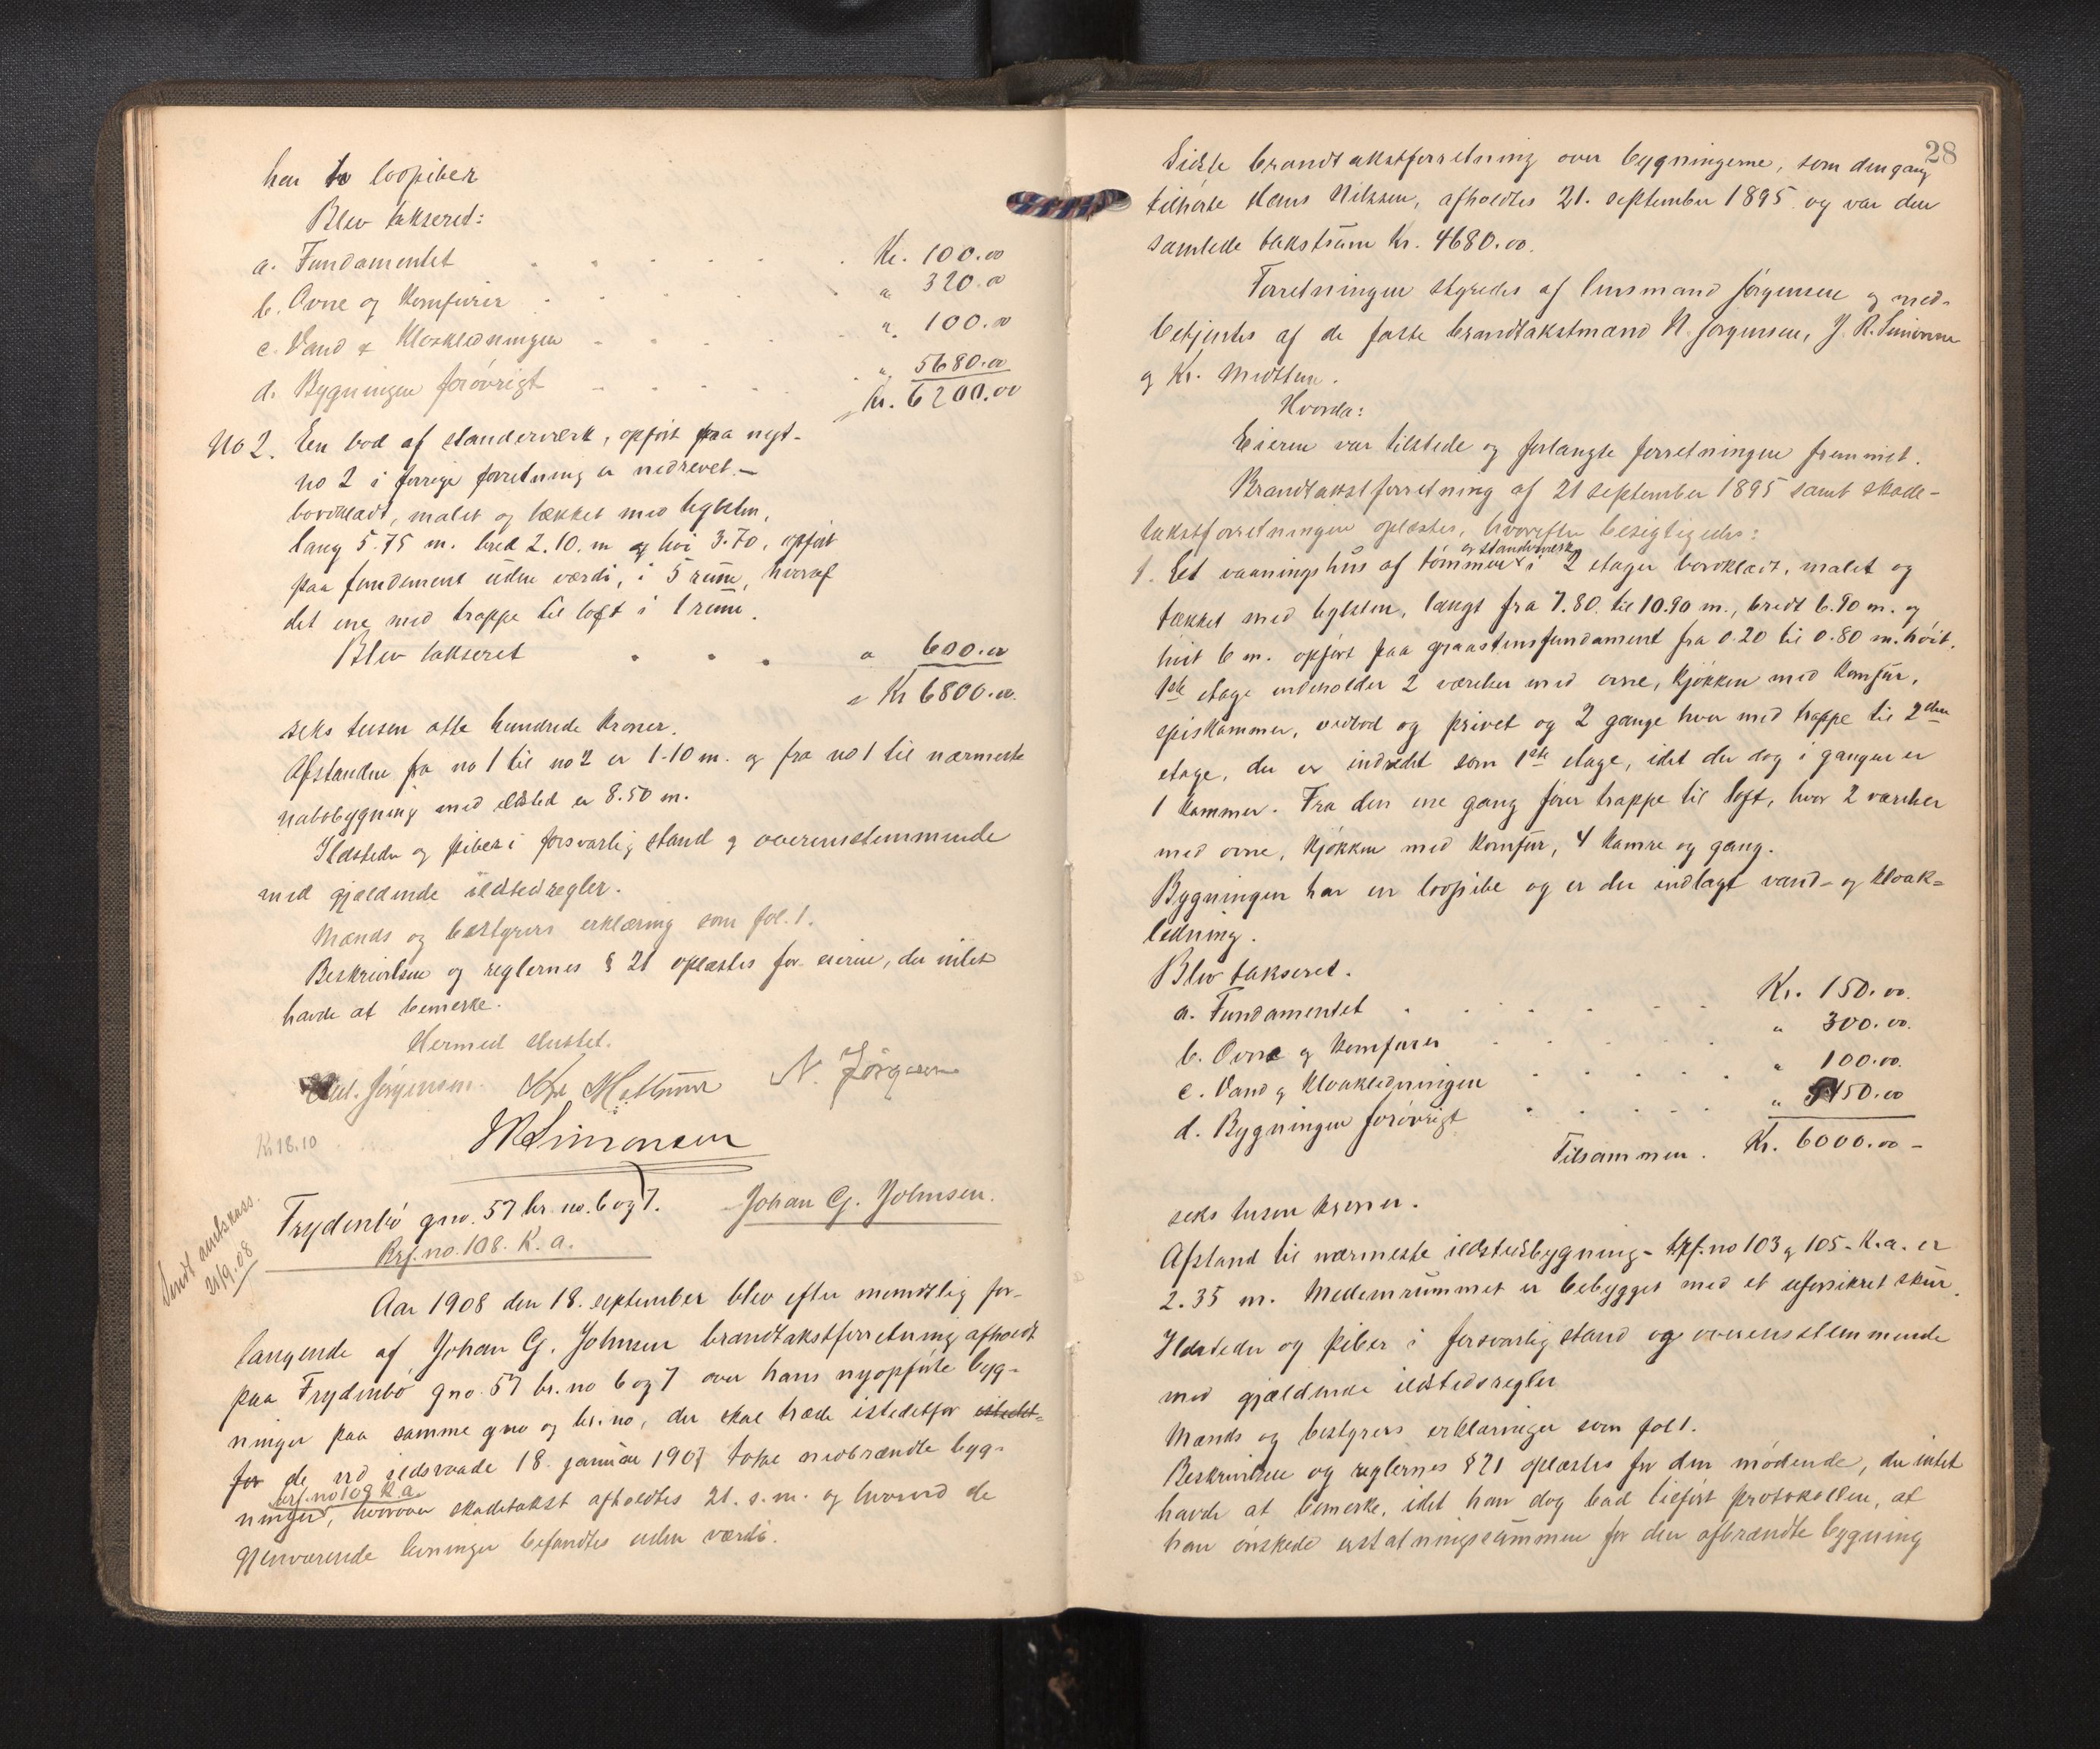 har to loopiber
Blev takseret:
a. Fundamentet . . . . . . Kr. 100.00
b. Ovne og Komfurer . . . . . " 320.00
c. Vand & Kloakledningen . . . . . " 100.00
d. Bygningen forøvrigt . . . . . " 5680.00
Kr. 6200.00
No 2. En bod af standerværk, opført paa nyt-
no 2 i forrige forretning er nedrevet. -
bordklædt, malet og tækket med teglsten,
lang 5.75 m. bred 2.10. m og høi 3.70, opført
paa fundament uden værdi, i 5 rum, hvoraf
det ene med trappe til loft i 1 rum.
Blev takseret . . . " 600.00
Kr 6800.00.
seks tusen otte hundrede kroner.
Afstanden fra no 1 til no 2 er 1.10 m. og fra no 1 til nærmeste
nabobygning med ildsted er 8.50 m.
Ildsteder og piber i forsvarlig stand og overensstemmende
med gjældende ildstedsregler.
Mænds og bestyrers erklæring som fol. 1.
Beskrivelsen og reglernes § 21 oplæstes for eieren, der intet
havde at bemerke.
Hermed sluttet.
Jørgensen. Kr Midttun N. Jørgensen
Kr 18.10
J R Simonsen
Sendt amtskass.
21/9.08
Frydenbø gno. 57 br. no. 6 og 7. Johan G. Johnsen.
Brf. no. 108. K. a.
Aar 1908 den 18. september blev efter mundtlig for-
langende af Johan G. Johnsen brandtakstforretning afholdt
paa Frydenbø gno. 57 br. no 6 og 7 over hans nyopførte byg-
ninger paa samme gno og br. no, der skal træde istedetfor istedet-
for de ved ildsvaade 18. januar 1907 totalt nedbrændte byg-
brf. no 109 K. a.
ninger, hvorover skadetakst afholdtes 21. s. m. og hvorved de
gjenværende levninger befandtes uden værdi.
28
Sidste brandtakstforretning over bygningerne, som dengang
tilhørte Hans Nilssen, afholdtes 21. september 1895 og var den
samlede takstsum Kr. 4680.00.
Forretningen styredes af lensmand Jørgensen og med-
betjentes af de faste brandtakstmænd N. Jørgensen, J. R. Simonsen
og Kr. Midttun.
Hvorda:
Eieren var tilstede og forlangte forretningen fremmet.
Brandtakstforretning af 21 september 1895 samt skade-
takstforretningen oplæstes, hvorefter besigtigedes:
og standerværk
1. Et vaaningshus af tømmer i 2 etager bordklædt, malet og
tækket med teglsten, langt fra 7.80. til 10.90 m., bredt 6.90 m. og
høit 6 m. opført paa graastensfundament fra 0.20 til 0.80 m. høit.
1ste etage indeholder 2 værelser med ovne, kjøkken med komfur,
spiskammer, vedbod og privet og 2 gange hver med trappe til 2den
etage, der er indredet som 1ste etage, idet der dog i gangen er
1 kammer. Fra den ene gang fører trappe til loft, hvor 2 værelser
med ovne, kjøkken med komfur, 4 kamre og gang.
Bygningen har en loopibe og er der indlagt vand- og kloak-
ledning.
Blev takseret.
a. Fundamentet . . . . . . Kr. 150.00.
b. Ovne og komfurer . . . . . " 300.00.
c. Vand og Kloakledningen . . . . . " 100.00.
d. Bygningen forøvrigt . . . . . " 5450.00
Tilsammen. Kr. 6000.00 -
seks tusen kroner.
Afstand til nærmeste ildstedsbygning - brf. no 103 og 105 - K. a. er
2.35 m. Mellemrummet er bebygget med et uforsikret skur.
Ildsteder og piber i forsvarlig stand og overensstemmende
med gjældende ildstedsregler
Mænds og bestyrers erklæringer som fol 1.
Beskrivelsen og reglernes § 21 oplæstes for den mødende, der intet
havde at bemerke, idet han dog bad tilført protokollen, at
han ønskede erstatningssummen for den afbrændte bygning